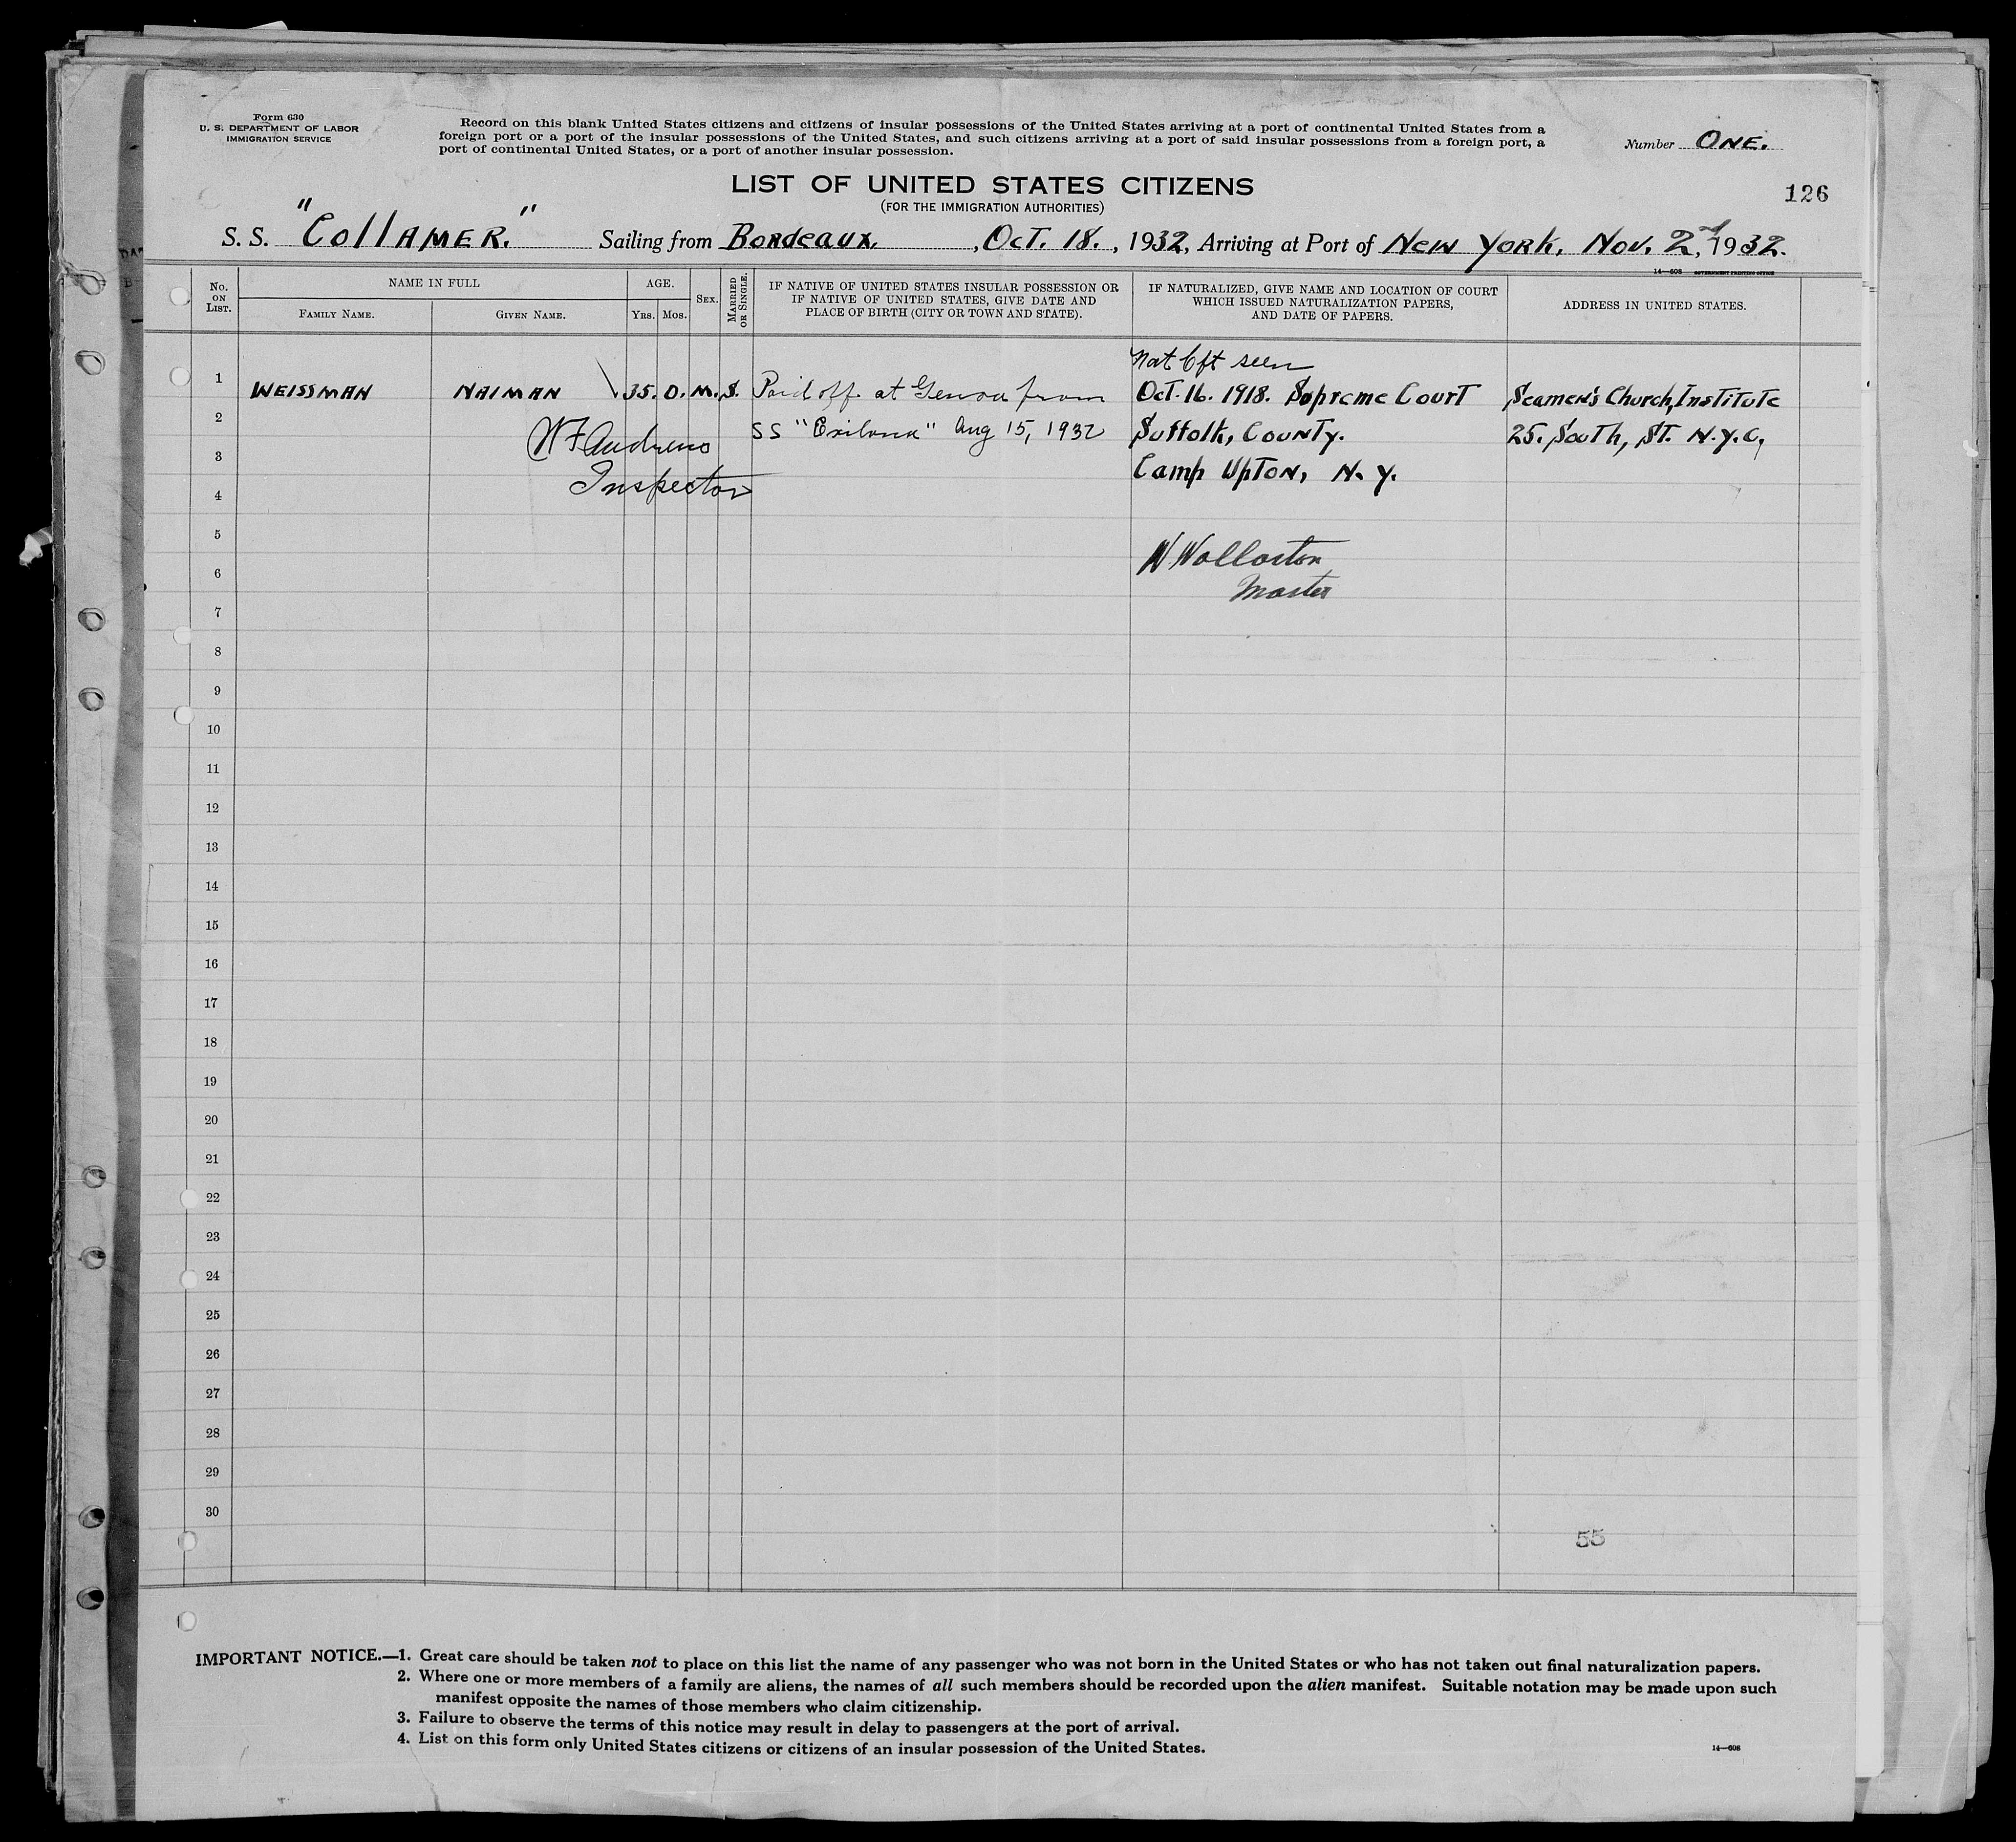 Form 630
U. S. DEPARTMENT OF LABOR
IMMIGRATION SERVICE
Record on this blank United States citizens and citizens of insular possessions of the United States arriving at a port of continental United States from a
foreign port or a port of the insular possessions of the United States, and such citizens arriving at a port of said insular possessions from a foreign port, a
port of continental United States, or a port of another insular possession.
Number ONE.
LIST OF UNITED STATES CITIZENS
(FOR THE IMMIGRATION AUTHORITIES)
126
S. S. "CollAMER." Sailing from Bordeaux, , OcT. 18. , 1932, Arriving at Port of New York, Nov. 2nd, 1932.
14—608 GOVERNMENT PRINTING OFFICE
No. ON LIST.
NAME IN FULL
FAMILY NAME.
GIVEN NAME.
AGE.
YRS.
MOS.
SEX.
MARRIED OR SINGLE.
IF NATIVE OF UNITED STATES INSULAR POSSESSION OR
IF NATIVE OF UNITED STATES, GIVE DATE AND
PLACE OF BIRTH (CITY OR TOWN AND STATE).
IF NATURALIZED, GIVE NAME AND LOCATION OF COURT
WHICH ISSUED NATURALIZATION PAPERS,
AND DATE OF PAPERS.
ADDRESS IN UNITED STATES.
Nat Cft seen
1 WEISSMAN NAIMAN 35. 0. M. S. Paid off at Genoa from Oct. 16. 1918. Supreme Court Seamen's Church, Institute
2 SS "Exilona" Aug 15, 1932 Suffolk, County. 25. South, ST. N.Y.C,
W F Andrews
3 Camp Upton, N. Y.
Inspector
4
5
W Wollaston
6
Master
7
8
9
10
11
12
13
14
15
16
17
18
19
20
21
22
23
24
25
26
27
28
29
30
55
IMPORTANT NOTICE.—1. Great care should be taken not to place on this list the name of any passenger who was not born in the United States or who has not taken out final naturalization papers.
2. Where one or more members of a family are aliens, the names of all such members should be recorded upon the alien manifest. Suitable notation may be made upon such
manifest opposite the names of those members who claim citizenship.
3. Failure to observe the terms of this notice may result in delay to passengers at the port of arrival.
4. List on this form only United States citizens or citizens of an insular possession of the United States.
14—608